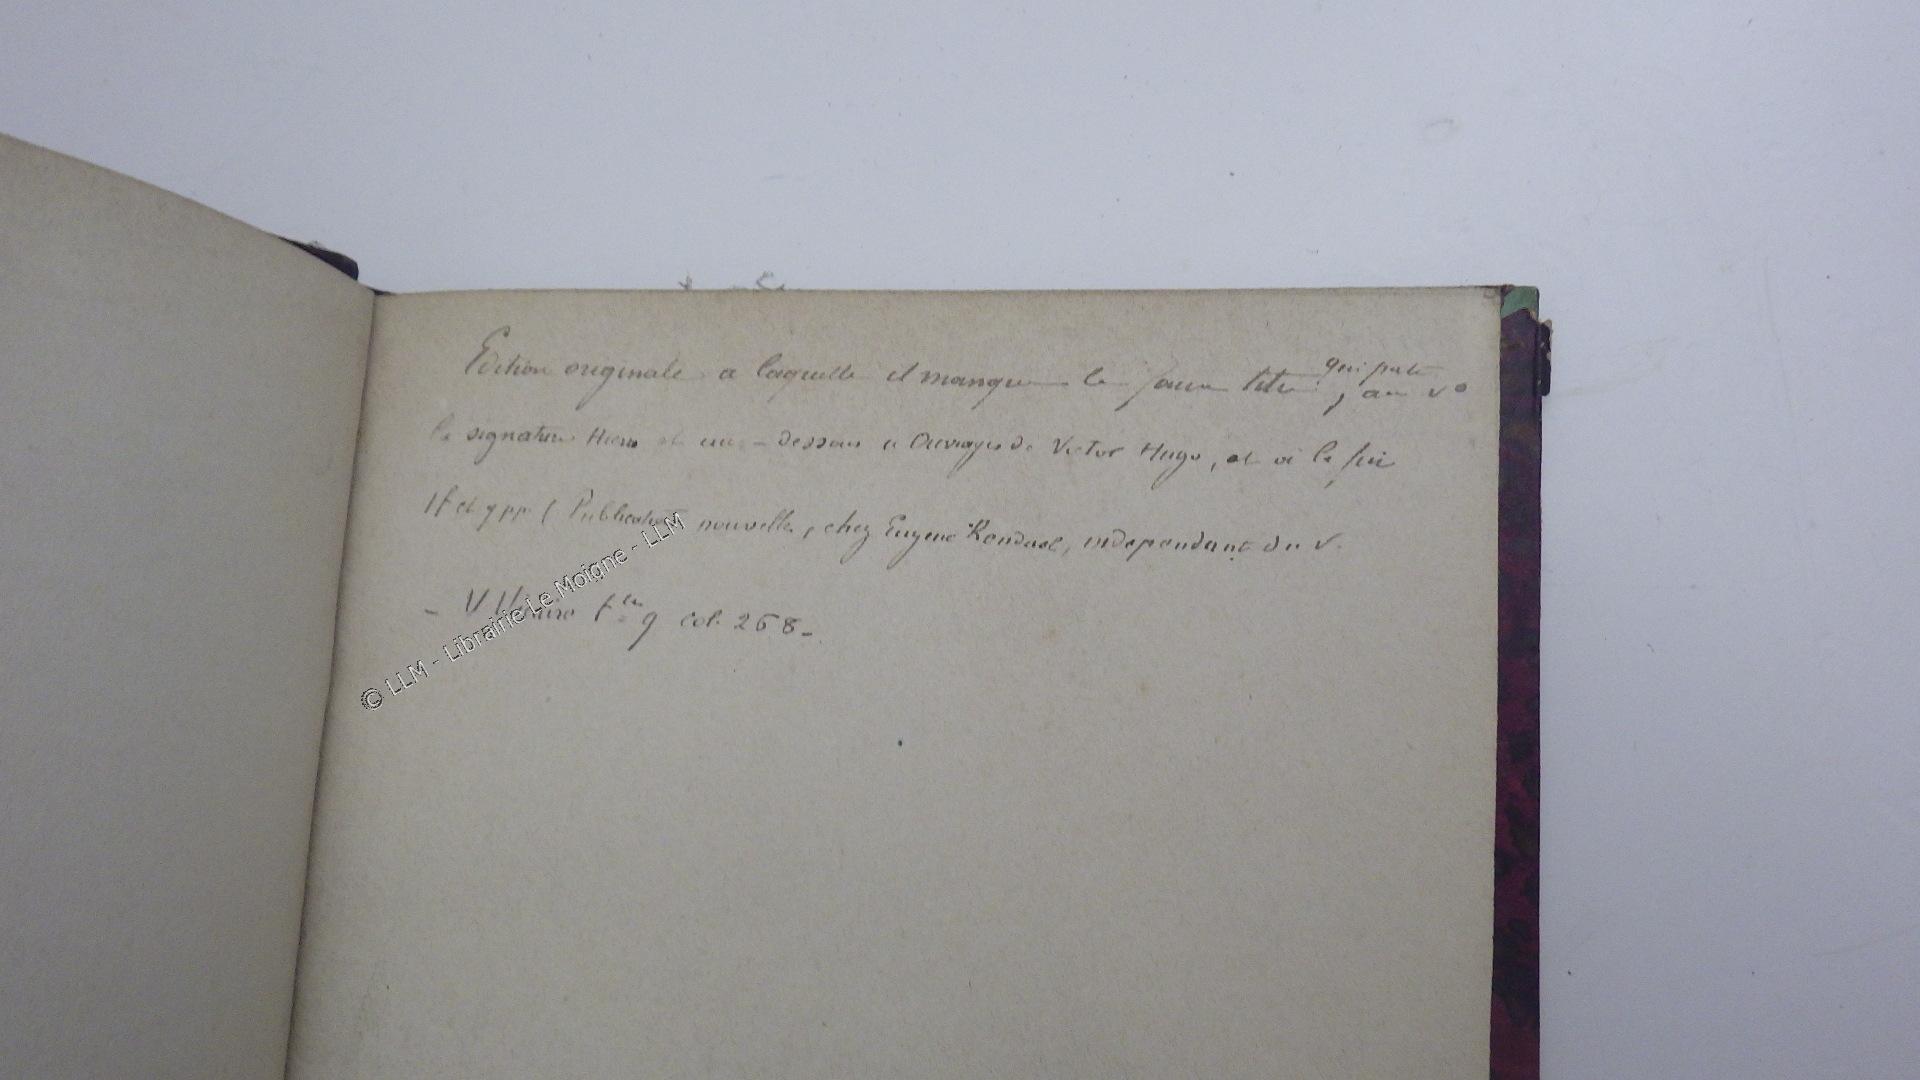 Edition originale a laquelle il manque le faux titre qui porte, au v°
la signature Hierro et au-dessous "Ouvrages de Victor Hugo, et à la fin
1 f et 9 pp. ( Publications nouvelles, chez Eugène Renduel, independant du V.
- V Vicaire t. 9 col. 268 -
© LLM - Librairie Le Moigne - LLM